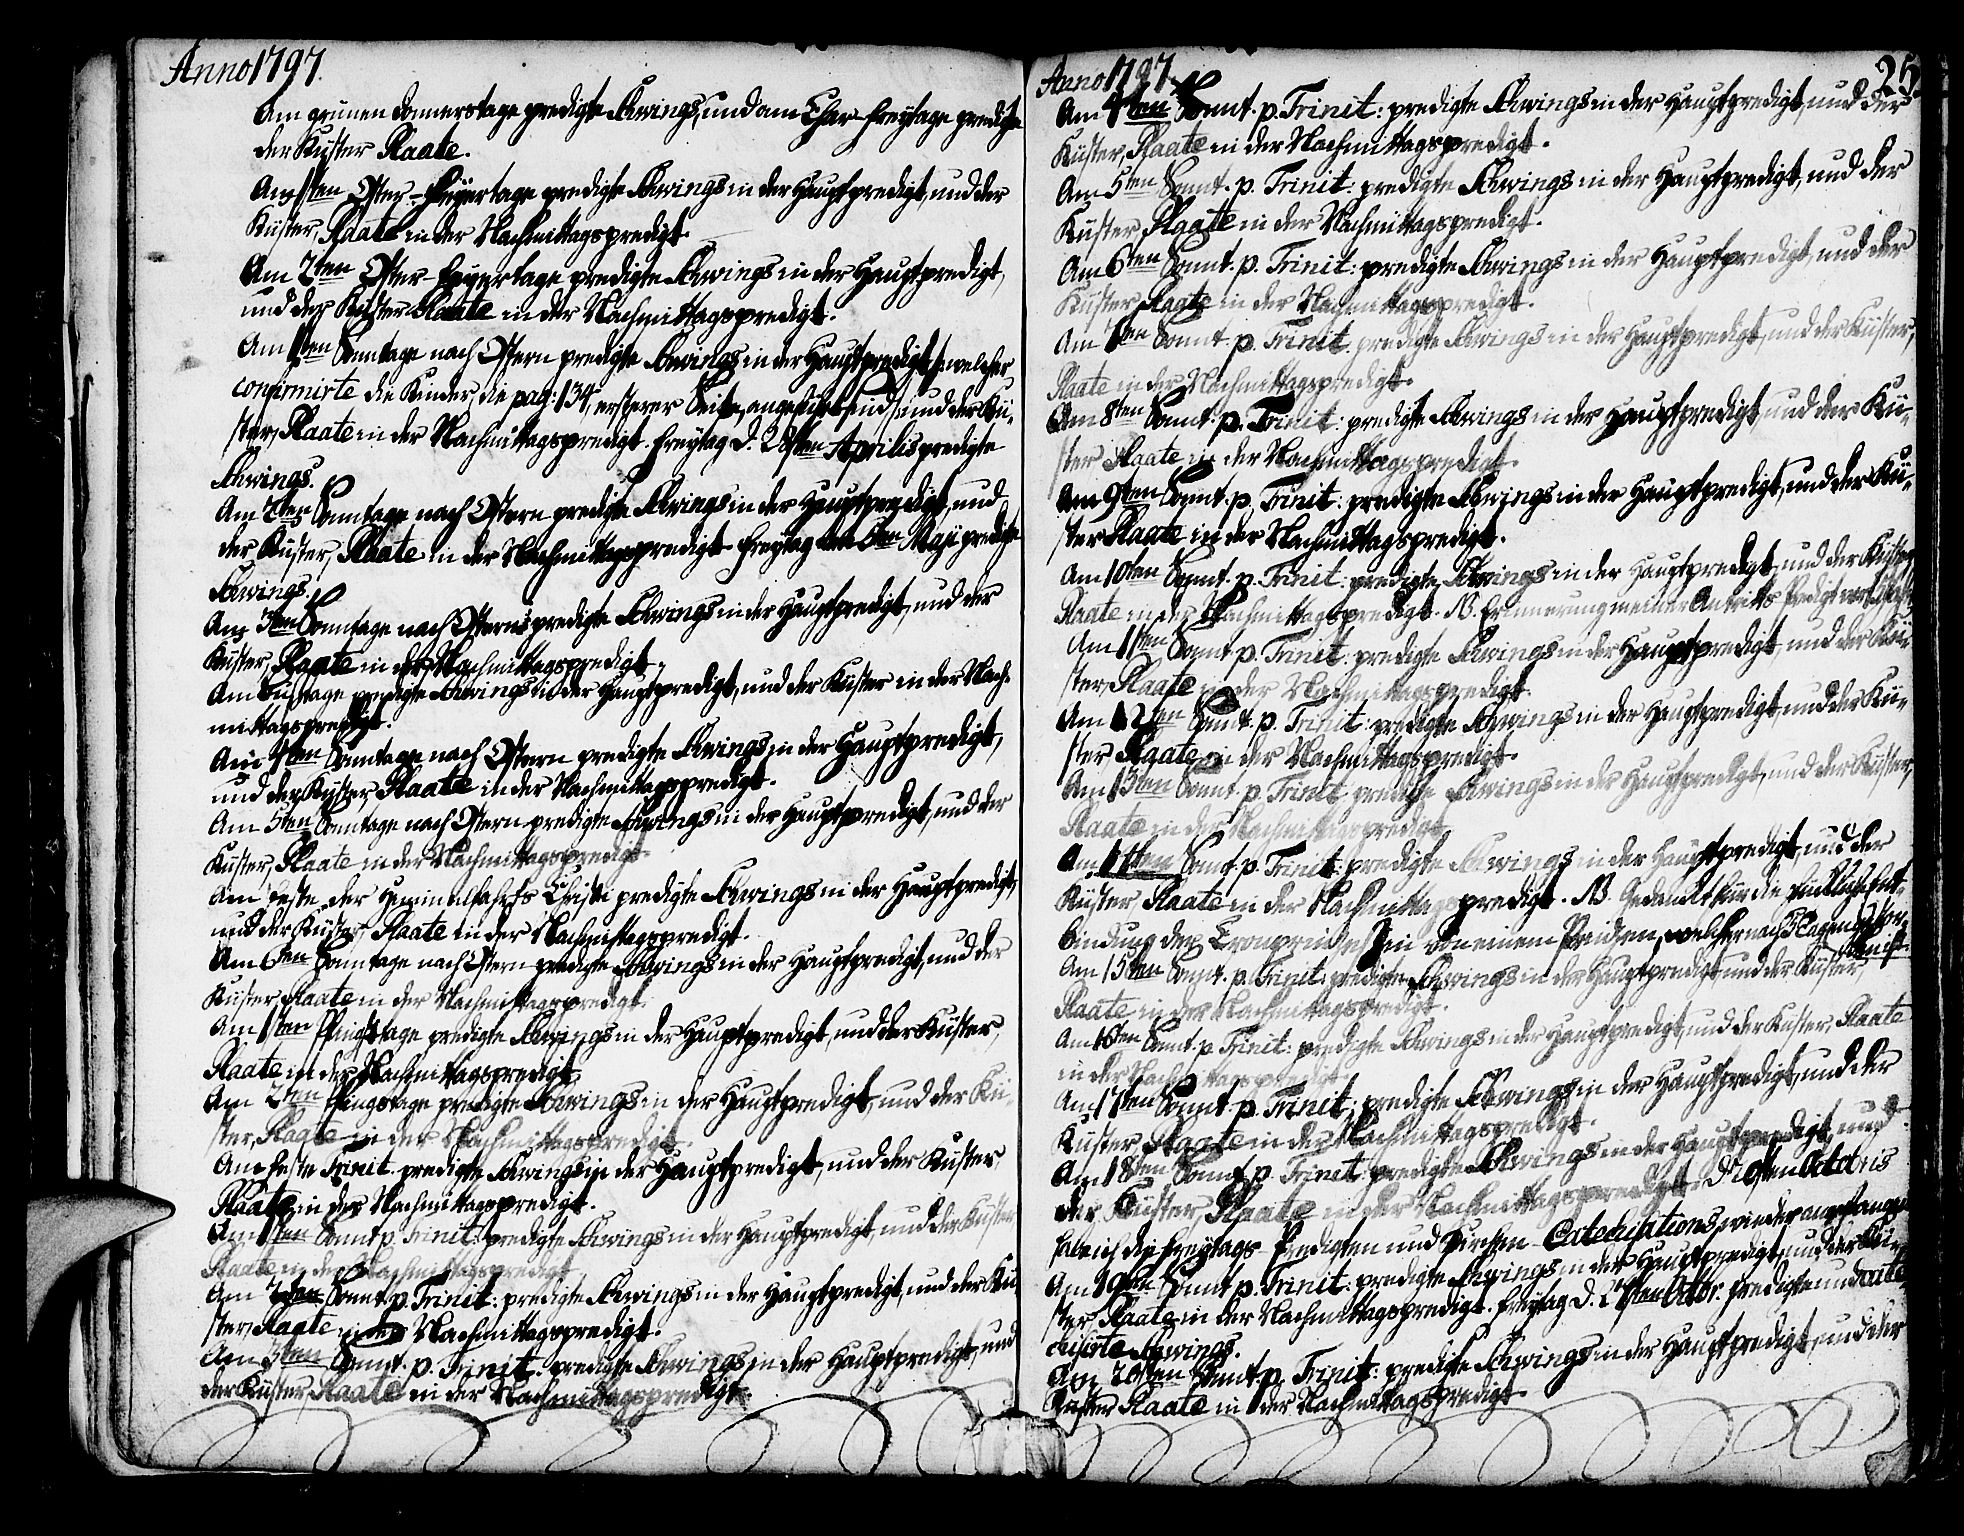 Anno 1797.
Am grünen Donnerstage predigte Schwings, und am Char-Freytage predigte
der Küster Plaate.
Am 1sten Oster-Feyertage predigte Schwings in der Hauptpredigt, und der
Küster, Plaate in der Nachmittagspredigt.
Am 2ten Oster-Feyertage predigte Schwings in der Hauptpredigt,
und der Küster Plaate in der Nachmittagspredigt.
Am 1sten Sonntage nach Ostern predigte Schwings in der Hauptpredigt, welcher
confirmirte die Kinder, die pag: 134, ersterer Seite, angeführt sind, und der Kü-
ster, Plaate in der Nachmittagspredigt. Freytag d. 28sten Aprilis predigte
Schwings.
Am 2ten Sonntage nach Ostern predigte Schwings in der Hauptpredigt, und
der Küster, Plaate in der Nachmittagspredigt. Freytag den 5ten Maji predigte
Schwings.
Am 3ten Sonntage nach Ostern predigte Schwings in der Hauptpredigt, und der
Küster, Plaate in der Nachmittagspredigt.
Am Bußtage predigte Schwings in der Hauptpredigt, und der Küster in der Nach-
mittagspredigt.
Am 4ten Sonntage nach Ostern predigte Schwings in der Hauptpredigt,
und der Küster, Plaate in der Nachmittagspredigt.
Am 5ten Sonntage nach Ostern predigte Schwings in der Hauptpredigt, und der
Küster, Plaate in der Nachmittagspredigt.
Am Feste der Himmelfahrts Christi predigte Schwings in der Hauptpredigt,
und der Küster, Plaate in der Nachmittagspredigt.
Am 6ten Sonntage nach Ostern predigte Schwings in der Hauptpredigt, und der
Küster, Plaate in der Nachmittagspredigt.
Am 1sten Pfingsttage predigte Schwings in der Hauptpredigt, und der Küster,
Plaate in der Nachmittagspredigt.
Am 2ten Pfingstage predigte Schwings in der Hauptpredigt, und der Kü-
ster, Plaate in der Nachmittagspredigt.
Am Feste Trinit. predigte Schwings in der Hauptpredigt, und der Küster
Plaate in der Nachmittagspredigt.
Am 1sten Sonnt. p. Trinit: predigte Schwings in der Hauptpredigt, und der Küster
Plaate in der Nachmittagspredigt.
Am 2ten Sonnt. p. Trinit: predigte Schwings in der Hauptpredigt, und der Kü-
ster, Plaate in der Nachmittagspredigt.
Am 3ten Sonnt. p. Trinit. predigte Schwings in der Hauptpredigt, und
der Küster, Plaate in der Nachmittagspredigt.
Anno 1797.
25
Am 4ten Sonnt. p. Trinit: predigte Schwings in der Hauptpredigt, und der
Küster, Plaate in der Nachmittagspredigt.
Am 5ten Sonnt. p. Trinit: predigte Schwings in der Hauptpredigt, und der
Küster, Plaate in der Nachmittagspredigt.
Am 6ten Sonnt. p. Trinit: predigte Schwings in der Hauptpredigt, und der
Küster, Plaate in der Nachmittagspredigt.
Am 7ten Sonnt. p. Trinit. predigte Schwings in der Hauptpredigt, und der Küster,
Plaate in der Nachmittagspredigt.
Am 8ten Sonnt. p. Trinit: predigte Schwings in der Hauptpredigt und der Kü-
ster Plaate in der Nachmittagspredigt.
Am 9ten Sonnt. p. Trinit: predigte Schwings in der Hauptpredigt, und der Kü-
ster Plaate in der Nachmittagspredigt.
Am 10ten Sonnt. p. Trinit: predigte Schwings in der Hauptpredigt, und der Küster
Plaate in der Nachmittagspredigt. NB. Erinnerung meiner Antritts Predigt
Am 11ten Sonnt. p. Trinit: predigte Schwings in der Hauptpredigt, und der Kü-
ster, Plaate in der Nachmittagspredigt.
Am 12ten Sonnt. p. Trinit: predigte Schwings in der Hauptpredigt, und der Kü-
ster, Plaate in der Nachmittagspredigt.
Am 13ten Sonnt. p. Trinit predigte Schwings in der Hauptpredigt, und der Küster,
Plaate in der Nachmittagspredigt
Am 14ten Sonnt. p. Trinit: predigte Schwings in der Hauptpredigt, und der
Küster, Plaate in der Nachmittagspredigt. NB. Gedankt für die glückliche Ent-
bindung der Cronprinzeßin von einem Prinzen, welcher nach 8 Tagen gestor-
ben ist.
Am 15ten Sonnt. p. Trinit: predigte Schwings in der Hauptpredigt und der Küster,
Plaate in der Nachmittagspredigt.
Am 16ten Sonnt. p. Trinit: predigte Schwings in der Hauptpredigt, und der Küster, Plaate
in der Nachmittagspredigt
Am 17ten Sonnt. p. Trinit; predigte Schwings in der Hauptpredigt, und der
Küster Plaate in der Nachmittagspredigt.
Am 18ten Sonnt. p. Trinit: predigte Schwings in der Hauptpredigt, und
der Küster, Plaate in der Nachmittagspredigt. Octobris
habe ich die Freytags-Predigten und Kirchen-Catechisations wieder angefangen
Am 19ten Sonnt. p. Trinit: predigte Schwings in der Hauptpredigt, und der Kü-
ster, Plaate in der Nachmittagspredigt. Freytag d. 27sten Octbr. predigte und cate-
chisirte Schwings.
Am 20sten Sonnt. p. Trinit: predigte Schwings in der Hauptpredigt, und der
Küster Plaate in der Nachmittagspredigt